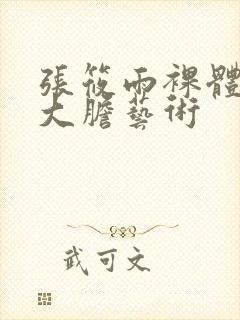 張筱雨裸體
大膽藝術
武可文